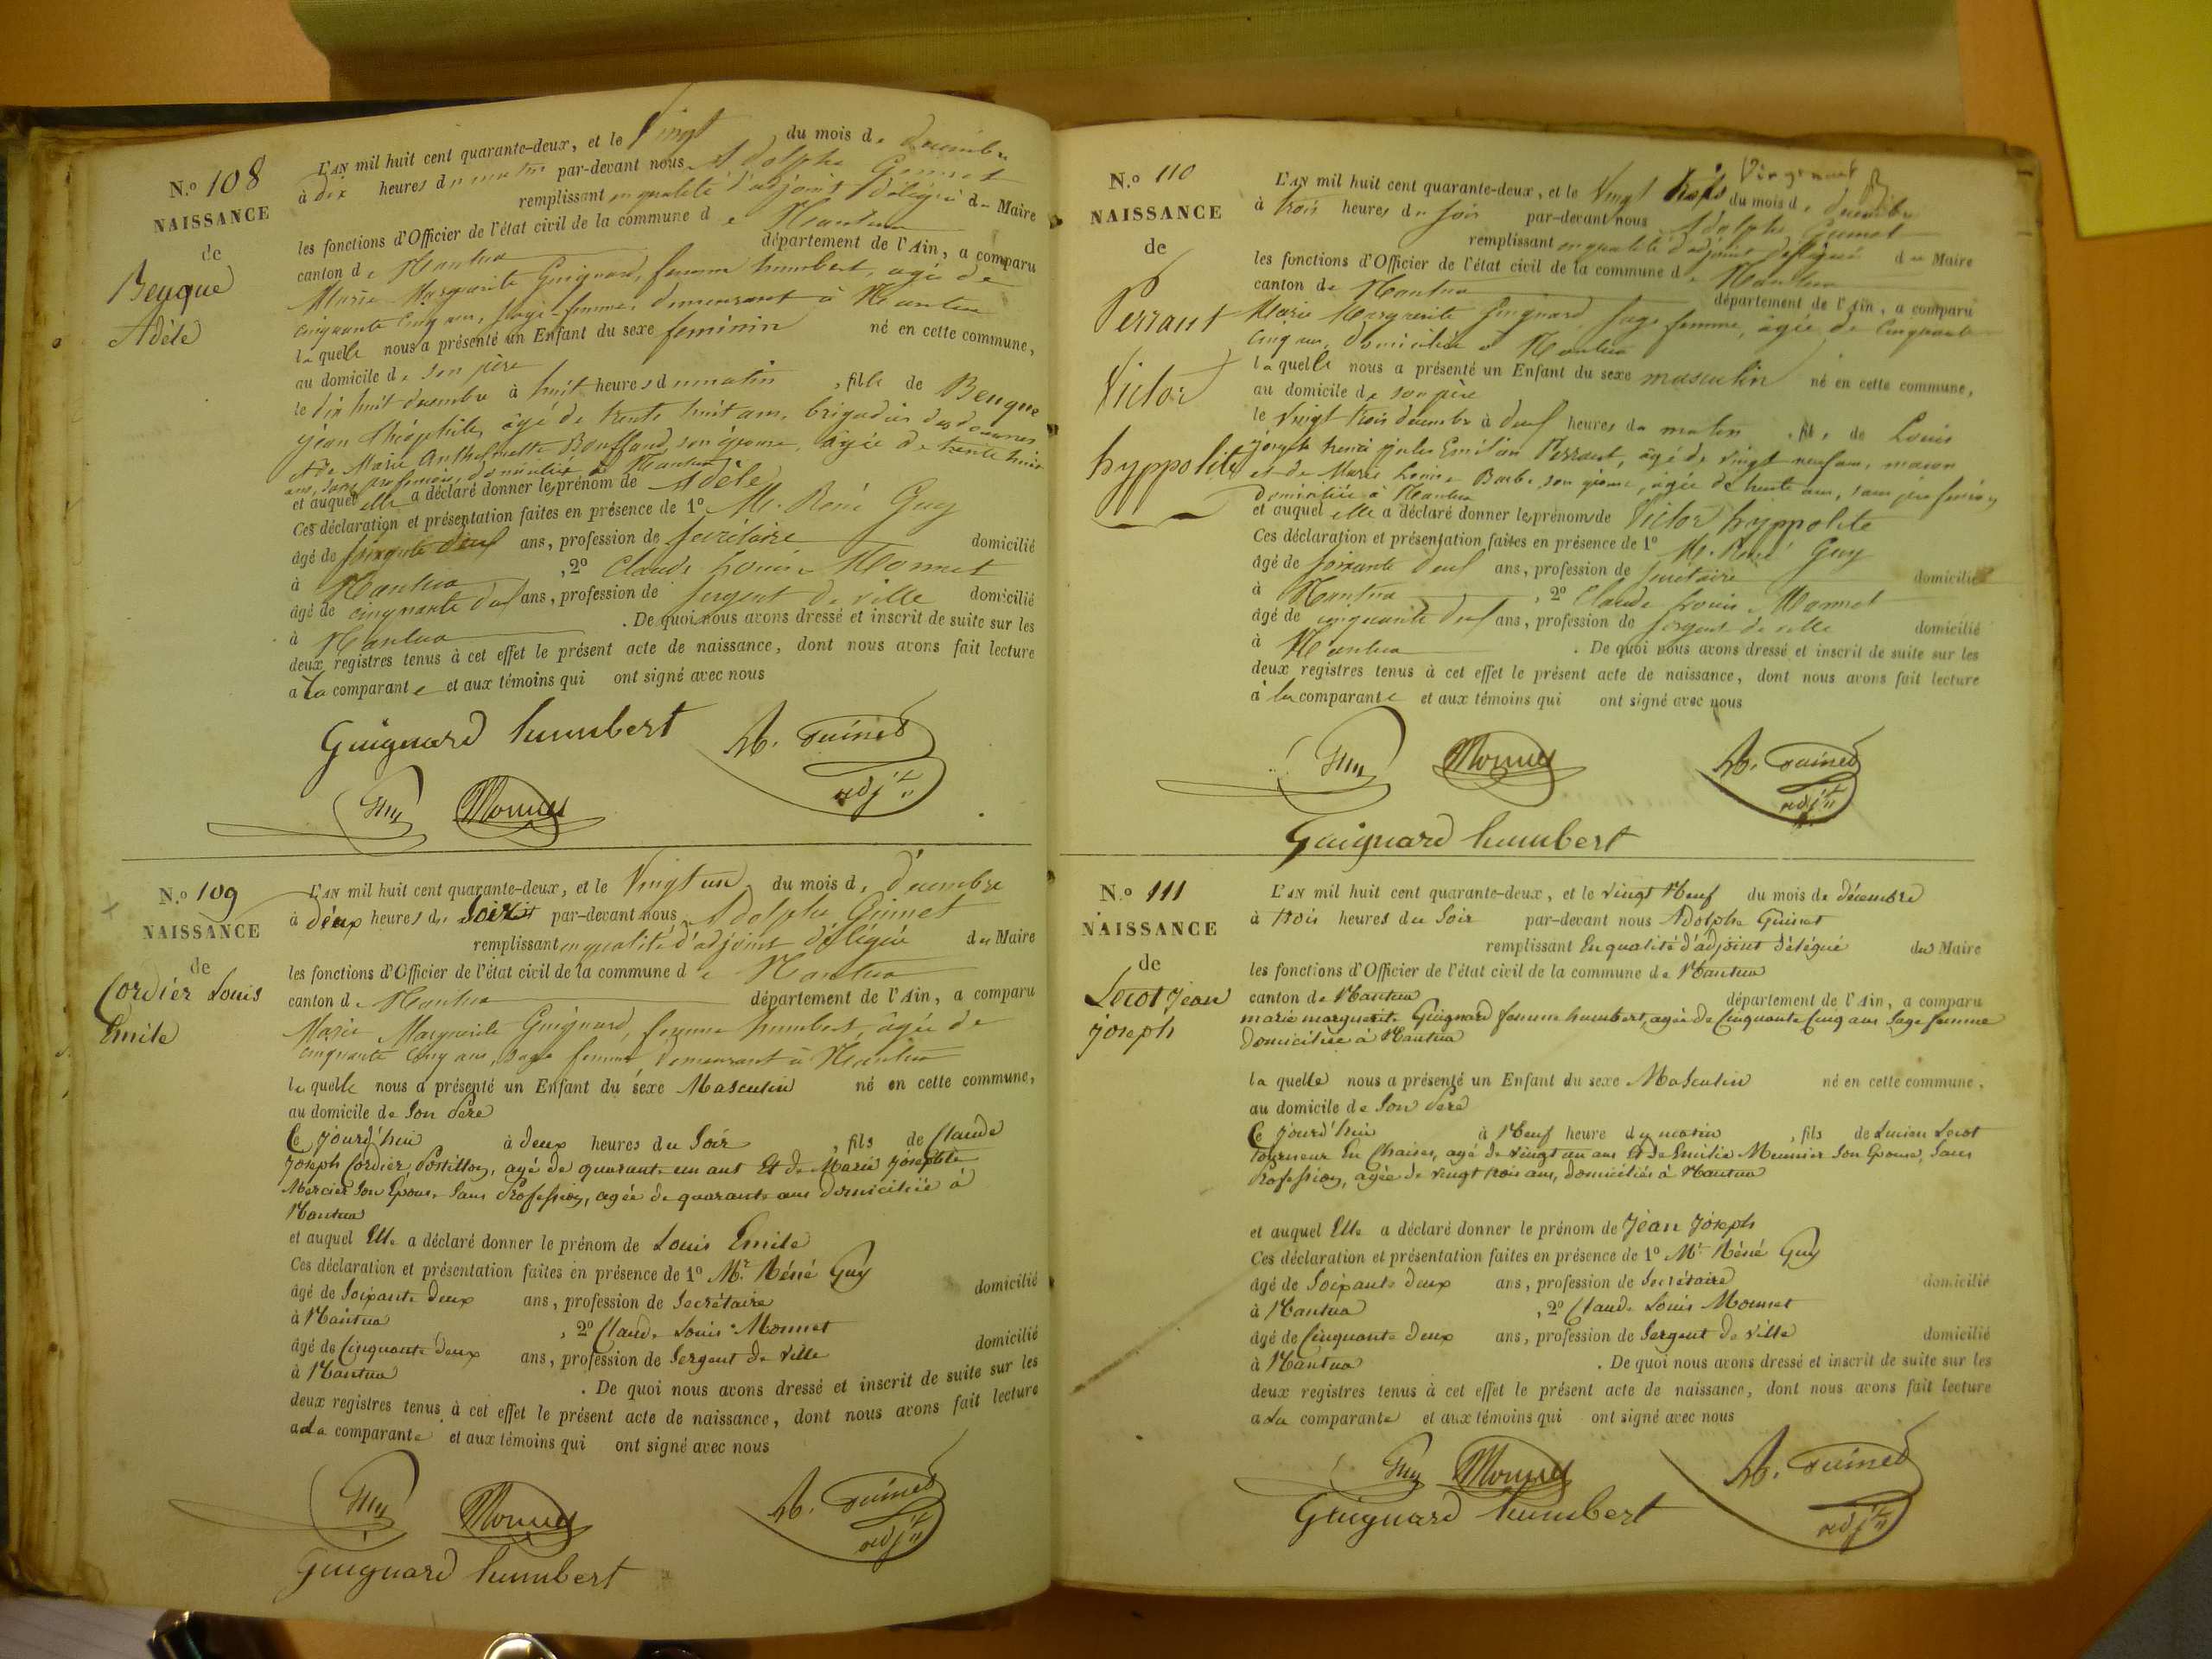 N.o 108
NAISSANCE
de
Beuque
Adèle
L'AN mil huit cent quarante-deux, et le Vingt du mois de décembre
à dix heures du matin par-devant nous Adolphe Guinet
remplissant en qualité d'adjoint délégué du Maire
les fonctions d'Officier de l'état civil de la commune de Nantua
canton de Nantua département de l'Ain, a comparu
Marie Marguerite Guignard, femme humbert, agée de
cinquante cinq ans, sage-femme, demeurant à Nantua
laquelle nous a présenté un Enfant du sexe féminin né en cette commune,
au domicile de son père
le dix huit décembre à huit heures du matin, fille de Beuque
jéan théophile, âgé de trente huit ans, brigadier des douanes
et de Marie Anthelmette Bouffand, son épouse, âgée de trente huit
ans, sans profession, domiciliés à Nantua
et auquel elle a déclaré donner le prénom de Adèle
Ces déclaration et présentation faites en présence de 1o Mr. René Guy
âgé de soixante deux ans, profession de secrétaire domicilié
à Nantua, 2o Claude Louis Monnet
âgé de cinquante deux ans, profession de sergent de ville domicilié
à Nantua. De quoi nous avons dressé et inscrit de suite sur les
deux registres tenus à cet effet le présent acte de naissance, dont nous avons fait lecture
a la comparante et aux témoins qui ont signé avec nous
Guignard humbert
Ad. Guinet
adjt
Guy
Monnet
N.o 109
NAISSANCE
de
Cordier Louis
Emile
L'AN mil huit cent quarante-deux, et le Vingt un du mois de décembre
à deux heures du Soir par-devant nous Adolphe Guinet
remplissant en qualité d'adjoint délégué du Maire
les fonctions d'Officier de l'état civil de la commune de Nantua
canton de Nantua département de l'Ain, a comparu
Marie Marguerite Guignard, femme humbert, âgée de
cinquante cinq ans, sage femme demeurant à Nantua
laquelle nous a présenté un Enfant du sexe Masculin né en cette commune,
au domicile de Son Père
Ce jourd'hui à deux heures du Soir, fils de Claude
Joseph Cordier, Postillon, agé de quarante un ans Et de Marie josephte
Mercier Son Epouse Sans Profession, agée de quarante ans domiciliés à
Nantua
et auquel Elle a déclaré donner le prénom de Louis Emile
Ces déclaration et présentation faites en présence de 1o Mr. Réné Guy
âgé de Soixante deux ans, profession de Secrétaire domicilié
à Nantua, 2o Claude Louis Monnet
âgé de Cinquante deux ans, profession de Sergent de Ville domicilié
à Nantua. De quoi nous avons dressé et inscrit de suite sur les
deux registres tenus à cet effet le présent acte de naissance, dont nous avons fait lecture
a la comparante et aux témoins qui ont signé avec nous
Guy
Monnet
Ad. Guinet
adjt
Guignard humbert
N.o 110
NAISSANCE
de
Perraut
Victor
hyppolite
L'AN mil huit cent quarante-deux, et le Vingt trois du mois de décembre
à trois heures du soir par-devant nous Adolphe Guinet
remplissant en qualité d'adjoint délégué du Maire
les fonctions d'Officier de l'état civil de la commune de Nantua
canton de Nantua département de l'Ain, a comparu
Marie Marguerite Guignard, sage femme, âgée de Cinquante
cinq ans, domiciliée à Nantua
laquelle nous a présenté un Enfant du sexe masculin né en cette commune,
au domicile de son père
le vingt trois décembre à deux heures du matin, fils de Louis
joseph henri jules Emilien Perraut, âgé de vingt neuf ans, maçon
et de Marie Louise Barbe son épouse, âgée de trente ans, sans profession,
domiciliés à Nantua
et auquel elle a déclaré donner les prénoms de Victor hyppolite
Ces déclaration et présentation faites en présence de 1o Mr. René Guy
âgé de soixante deux ans, profession de secrétaire domicilié
à Nantua, 2o Claude Louis Monnet
âgé de cinquante deux ans, profession de sergent de ville domicilié
à Nantua. De quoi nous avons dressé et inscrit de suite sur les
deux registres tenus à cet effet le présent acte de naissance, dont nous avons fait lecture
à la comparante et aux témoins qui ont signé avec nous
Guy
Monnet
Ad. Guinet
adjt
Guignard humbert
N.o 111
NAISSANCE
de
Locot Jean
joseph
L'AN mil huit cent quarante-deux, et le vingt Neuf du mois de décembre
à trois heures du Soir par-devant nous Adolphe Guinet
remplissant En qualité d'adjoint délégué du Maire
les fonctions d'Officier de l'état civil de la commune de Nantua
canton de Nantua département de l'Ain, a comparu
marie marguerite Guignard femme humbert, agée de Cinquante Cinq ans Sage femme
domiciliée à Nantua
laquelle nous a présenté un Enfant du sexe Masculin né en cette commune,
au domicile de Son Père
Ce jourd'hui à Neuf heure du matin, fils de Lucien Locot
tourneur En Chaises, agé de vingt un ans Et de Emilie Meunier Son Epouse, Sans
Profession, agée de vingt trois ans, domiciliés à Nantua
et auquel Elle a déclaré donner le prénom de Jéan joseph
Ces déclaration et présentation faites en présence de 1o Mr. Réné Guy
âgé de Soixante deux ans, profession de Secrétaire domicilié
à Nantua, 2o Claude Louis Monnet
âgé de Cinquante deux ans, profession de Sergent de Ville domicilié
à Nantua. De quoi nous avons dressé et inscrit de suite sur les
deux registres tenus à cet effet le présent acte de naissance, dont nous avons fait lecture
a la comparante et aux témoins qui ont signé avec nous
Guy
Monnet
Ad. Guinet
adjt
Guignard humbert